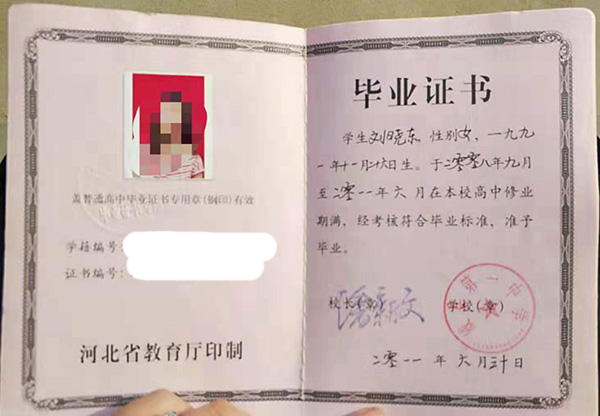 盖普通高中毕业证书专用章(钢印)有效
学籍编号:
证书编号:
河北省教育厅印制
毕业证书
学生刘晓东,性别女,一九九
一年十一月二六日生。于二〇〇八年九月
至二〇一一年六月在本校高中修业
期满,经考核符合毕业标准,准予
毕业。
校长(章)
学校(章)
第一中学
二〇一一年六月三十日